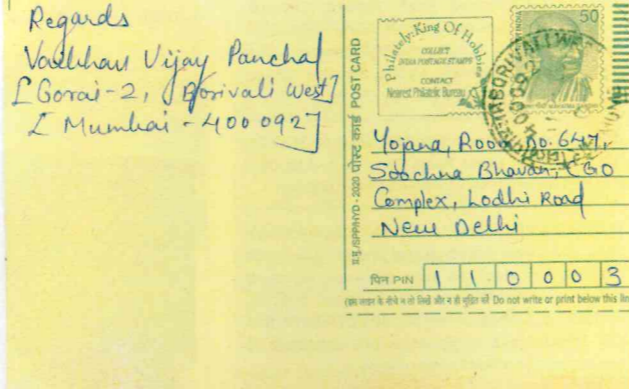 Regards
Vaibhav Vijay Panchal
[Gorai-2, Borivali West]
[Mumbai - 400 092]
Philately: King Of Hobbies
COLLECT
INDIA POSTAGE STAMPS
CONTACT
Nearest Philatelic Bureau
50
INDIA
BORIVALI W
पोस्ट कार्ड POST CARD
प्र.मु./SPP/HYD - 2020
Yojana, Room No. 647,
Soochna Bhavan, CGO
Complex, Lodhi Road
New Delhi
पिन PIN 1 1 0 0 0 3
(इस लाइन के नीचे न तो लिखें और न ही मुद्रित करें Do not write or print below this line